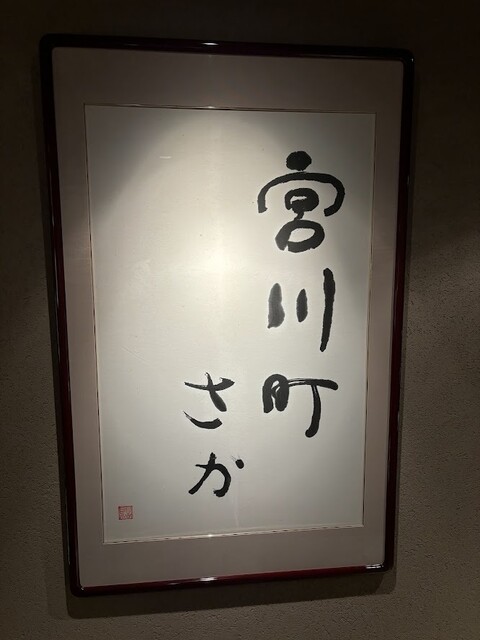 宮川町
さか